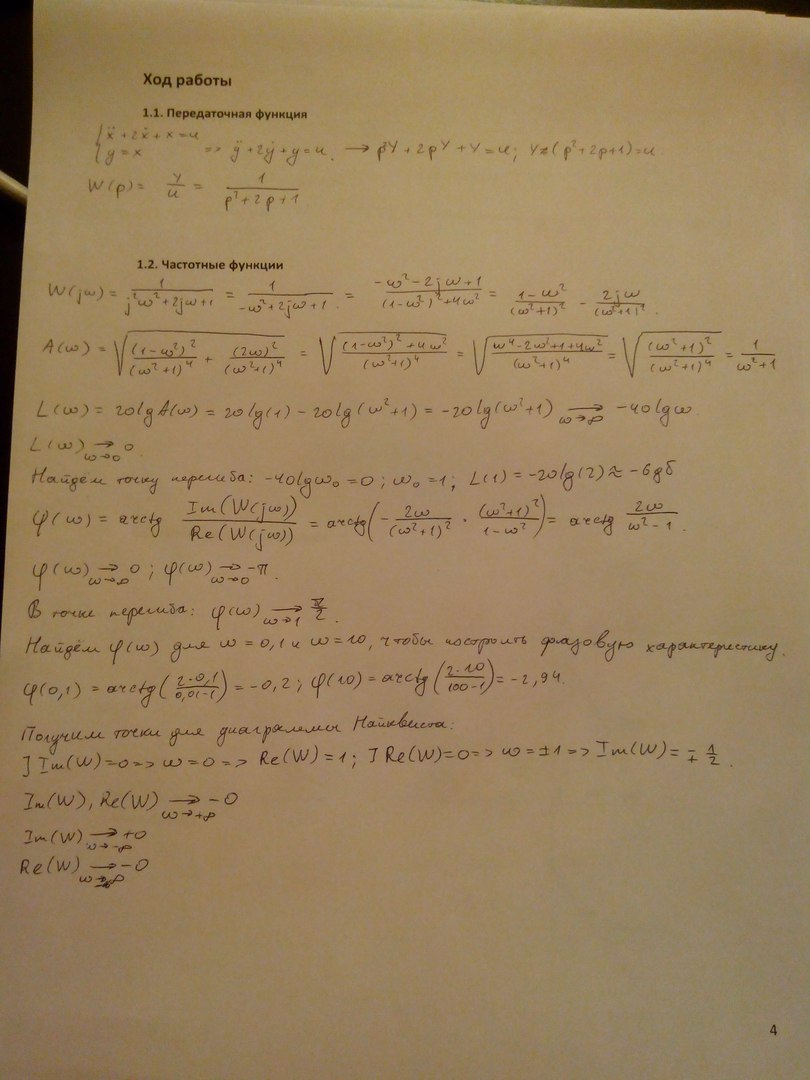 Ход работы
1.1. Передаточная функция
{ẍ + 2ẋ + x = u
{y = x => ÿ + 2ẏ + y = u. → p²Y + 2pY + Y = u; Y(p²+2p+1) = u
W(p) = Y/u = 1/(p²+2p+1)
1.2. Частотные функции
W(jω) = 1/(j²ω²+2jω+1) = 1/(-ω²+2jω+1) = (-ω²-2jω+1)/((1-ω²)²+4ω²) = (1-ω²)/(ω²+1)² - 2jω/(ω²+1)².
A(ω) = √((1-ω²)²/(ω²+1)⁴ + (2ω)²/(ω²+1)⁴) = √(((1-ω²)²+4ω²)/(ω²+1)⁴) = √((ω⁴-2ω²+1+4ω²)/(ω²+1)⁴) = √((ω²+1)²/(ω²+1)⁴) = 1/(ω²+1)
L(ω) = 20lgA(ω) = 20lg(1) - 20lg(ω²+1) = -20lg(ω²+1) →(ω→∞) -40lgω.
L(ω) →(ω→0) 0
Найдём точку перегиба: -40lgω₀ = 0; ω₀ = 1; L(1) = -20lg(2) ≈ -6дБ
φ(ω) = arctg Im(W(jω))/Re(W(jω)) = arctg(-2ω/(ω²+1)² · (ω²+1)²/(1-ω²)) = arctg 2ω/(ω²-1).
φ(ω) →(ω→∞) 0; φ(ω) →(ω→0) -π.
В точке перегиба: φ(ω) →(ω→1) π/2.
Найдём φ(ω) для ω = 0,1 и ω = 10, чтобы построить фазовую характеристику.
φ(0,1) = arctg(2·0,1/(0,01-1)) = -0,2; φ(10) = arctg(2·10/(100-1)) = -2,94.
Получим точки для диаграммы Найквиста:
] Im(W)=0 => ω=0 => Re(W)=1; ] Re(W)=0 => ω=±1 => Im(W) = ∓1/2.
Im(W), Re(W) →(ω→+∞) -0
Im(W) →(ω→-∞) +0
Re(W) →(ω→-∞) -0
4